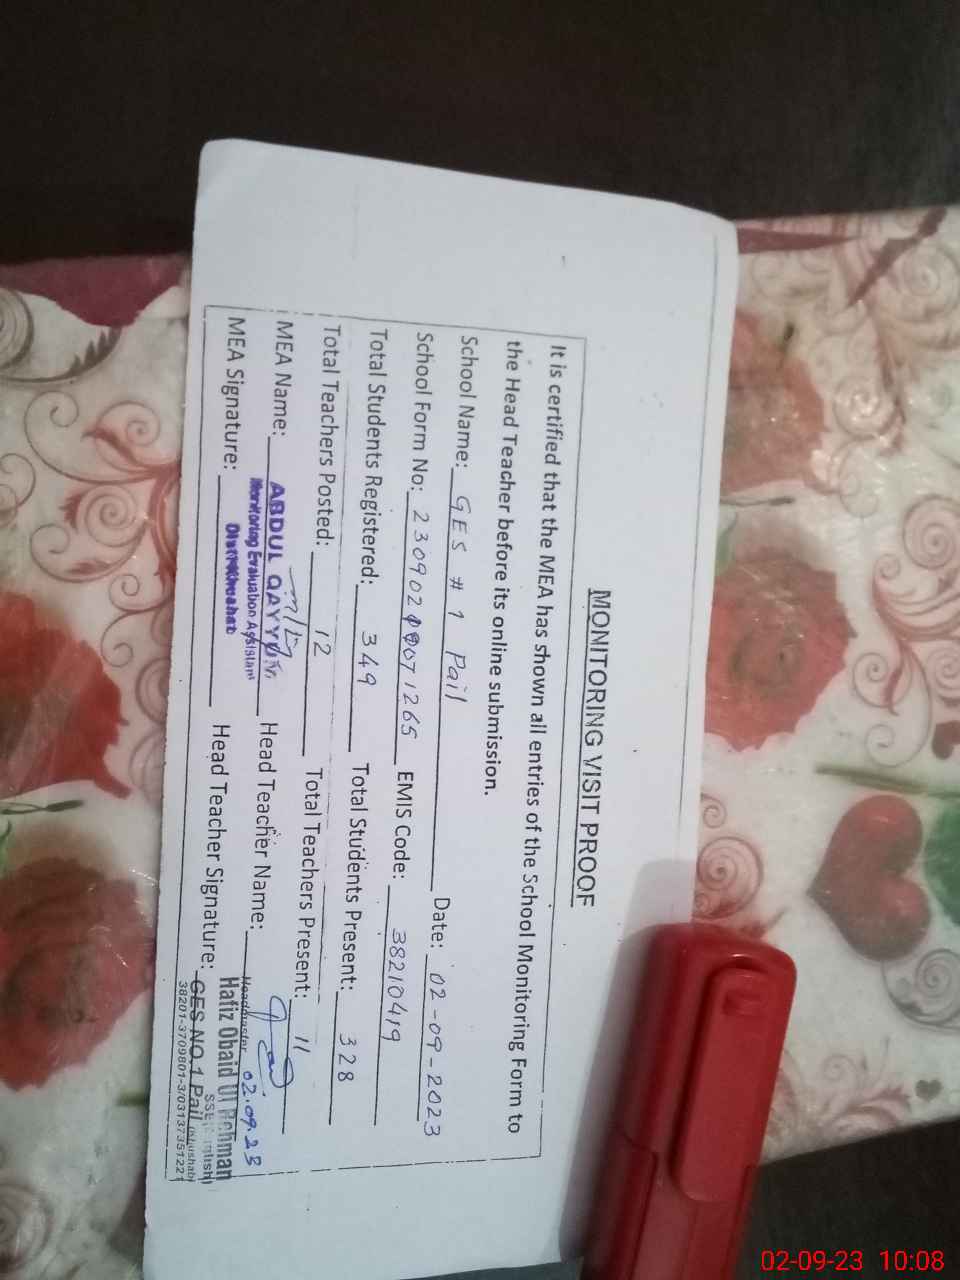 MONITORING VISIT PROOF
It is certified that the MEA has shown all entries of the School Monitoring Form to
the Head Teacher before its online submission.
School Name: GES # 1 Pail Date: 02-09-2023
School Form No: 230902 071265 EMIS Code: 38210419
Total Students Registered: 349 Total Students Present: 328
Total Teachers Posted: 12 Total Teachers Present: 11
MEA Name: ABDUL QAYYUM Head Teacher Name:
Monitoring Evaluation Assistant
Headmaster 02.09.23
MEA Signature: Distt Khushab Head Teacher Signature: Hafiz Obaid Ul Rehman
SSE (English)
GES NO.1 Pail (Khushab)
38201-3709801-3/03137351221
02-09-23 10:08